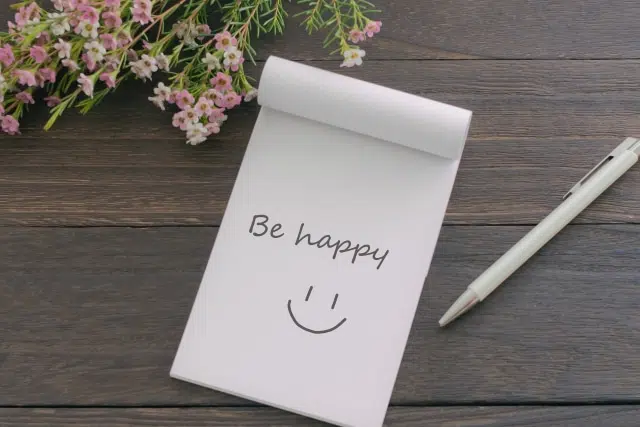 Be happy